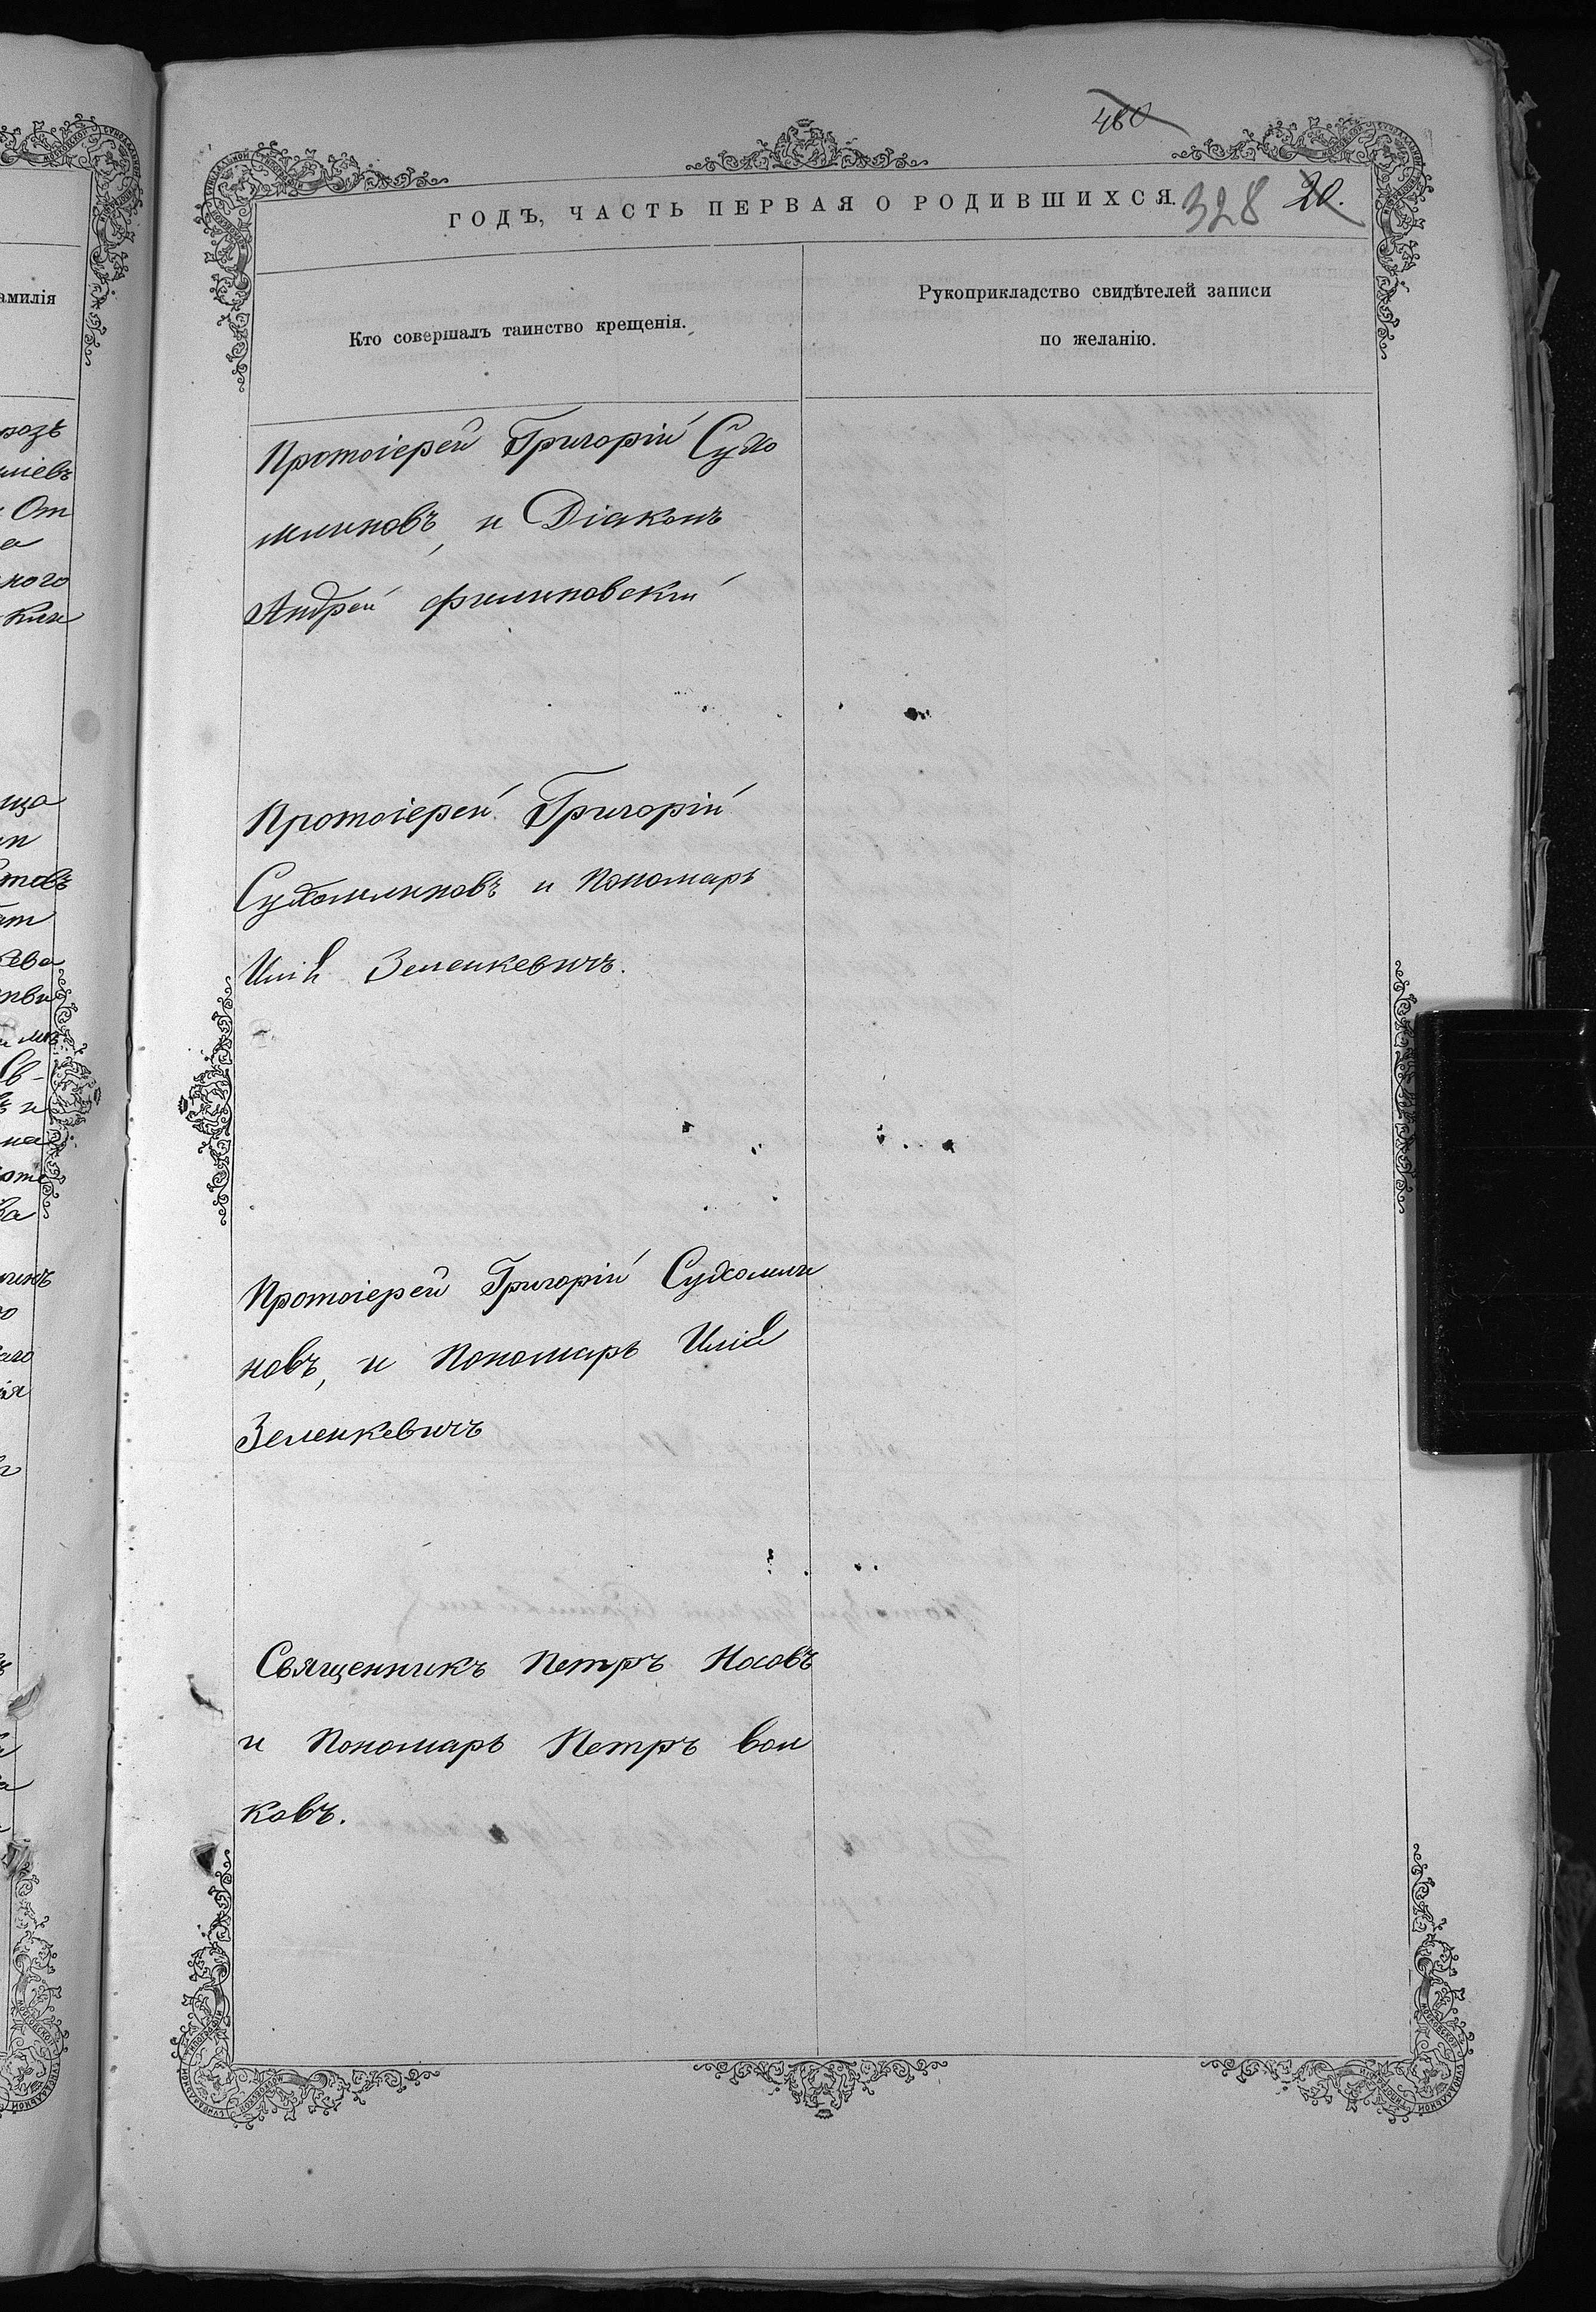 460
ГОДЪ, ЧАСТЬ ПЕРВАЯ О РОДИВШИХСЯ. 328 20.
Кто совершалъ таинство крещенія.
Рукоприкладство свидѣтелей записи
по желанію.
Протоіерей Григорій Сухо
млиновъ, и Діаконъ
Андрей Филиповскій
Протоіерей Григорій
Сухомлиновъ и Пономарь
Илія Зеленкевичъ.
Протоіерей Григорій Сухомли
новъ, и Пономарь Илія
Зеленкевичъ
Священникъ Петръ Носовъ
и Пономарь Петръ Вол
ковъ.
амилія